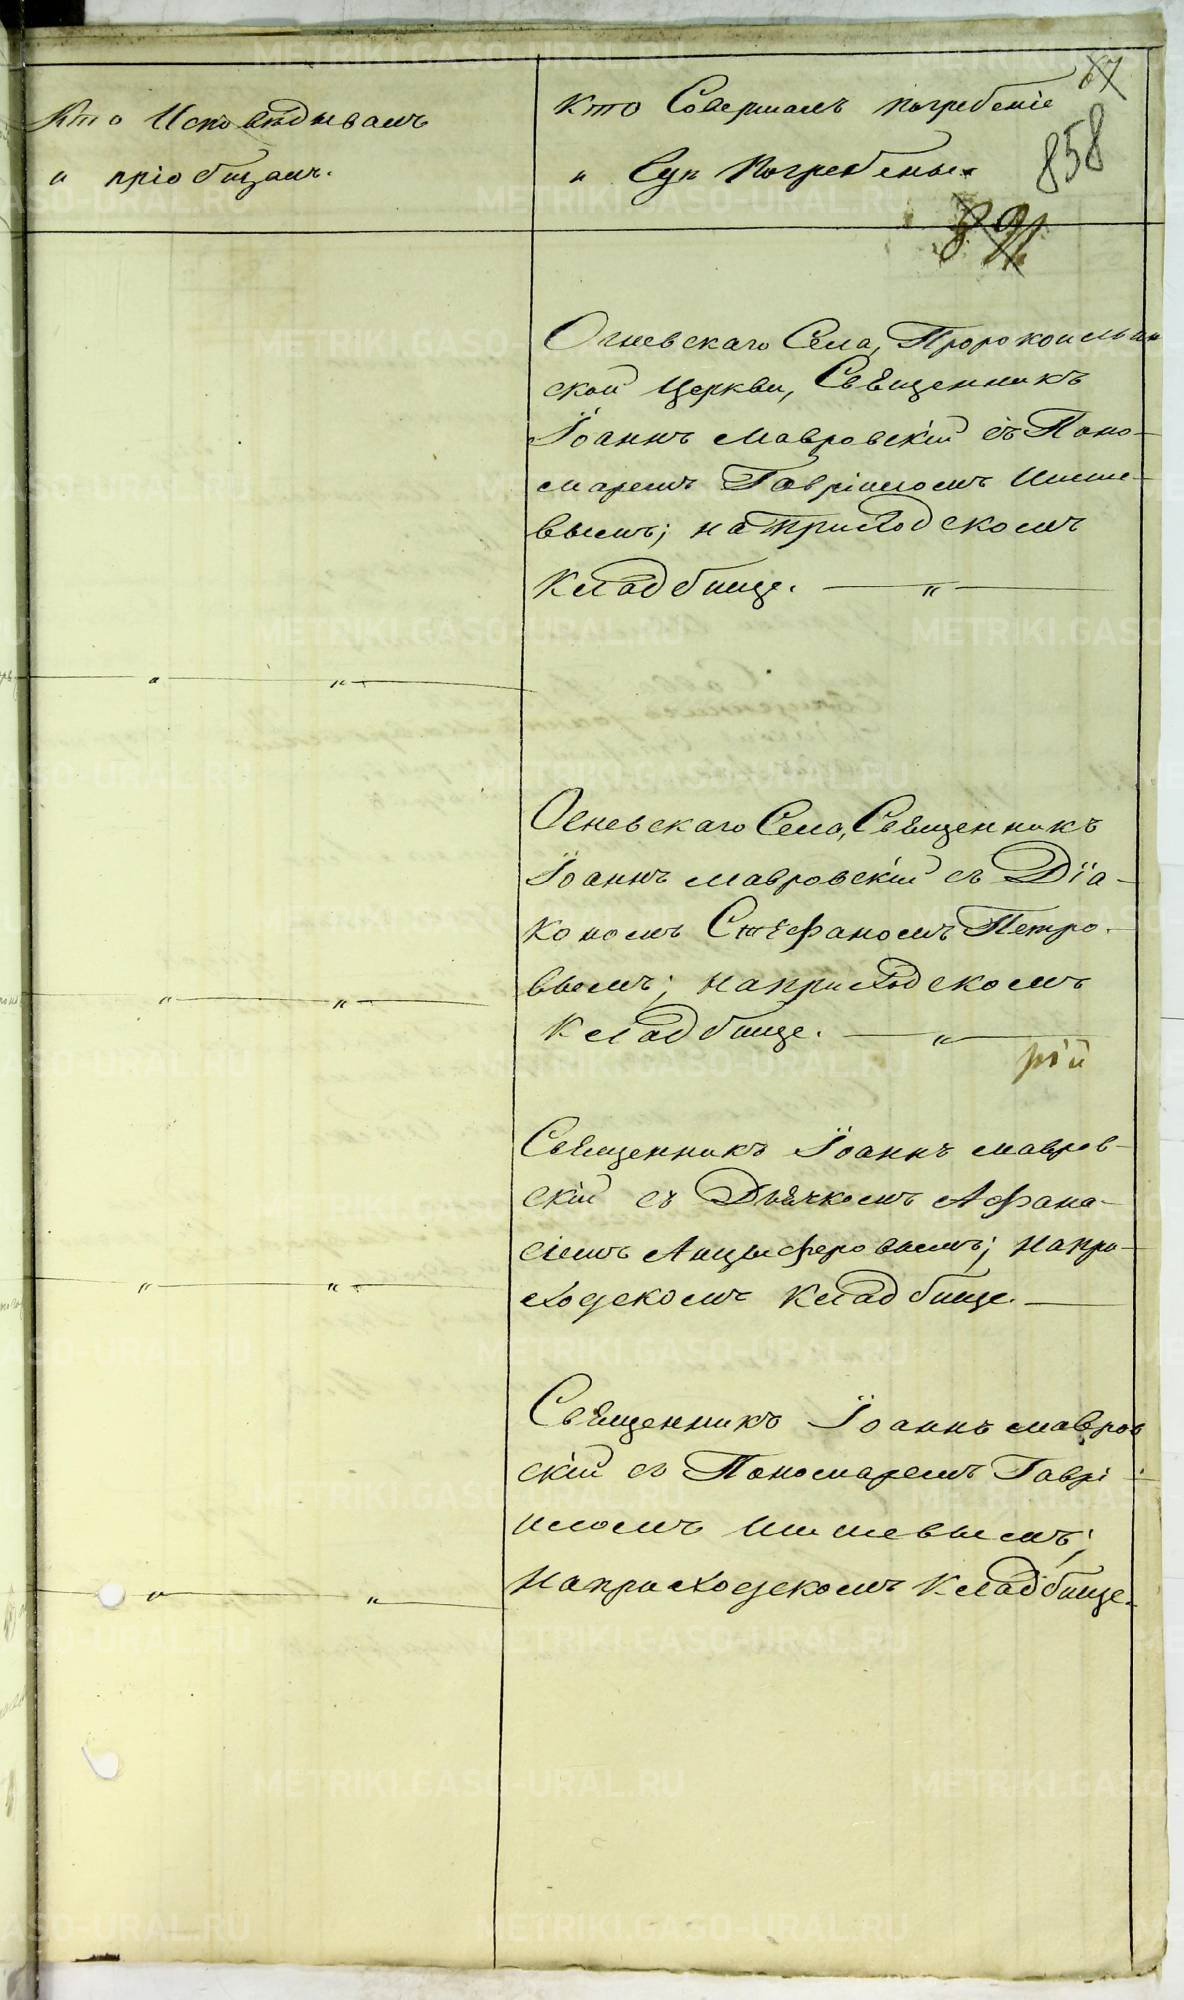 Кто Исповѣдывалъ
и пріобщалъ.
Кто Совершалъ погребеніе
и Гдѣ Погребены.
858
Огневскаго Села, Пророкоильин
ской Церкви, Священникъ
Іоаннъ Мавровскій съ Поно-
маремъ Гавріиломъ
вымъ; на приходскомъ
Кладбище. — „ —
„ „
Огневскаго Села, Священникъ
Іоаннъ Мавровскій съ Діа-
кономъ Стефаномъ Петро-
вымъ; на приходскомъ
Кладбище. — „ —
„ „
рій
Священникъ Іоаннъ Мавров-
скій съ Дьячкомъ Афана-
сіемъ Анцыферовымъ; на при-
ходскомъ Кладбище. —
„ „
Священникъ Іоаннъ Мавров
скій съ Пономаремъ Гаврі-
иломъ
на приходскомъ Кладбище.
„ „
METRIKI.GASO-URAL.RU